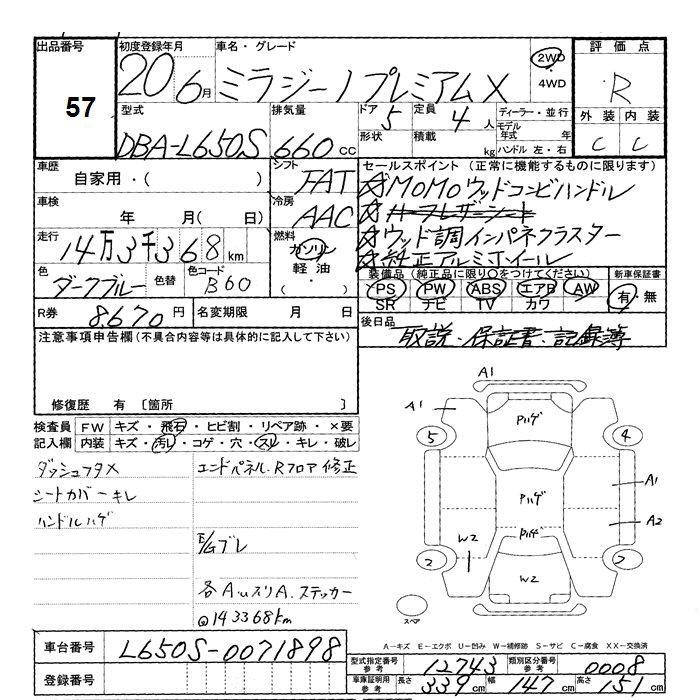 出品番号 初度登録年月 車名・グレード 評価点
57 20 6月 ミラジーノプレミアムX 2WD ・4WD R
型式 排気量 ドア 5 定員 4人 ディーラー・並行 外装 内装
DBA-L650S 660cc 形状 積載 kg モデル年式 年 C C
ハンドル 左・右
車歴 シフト セールスポイント (正常に機能するものに限ります)
自家用・( ) FAT ☆MOMOウッドコンビハンドル
車検 冷房 ☆ハーフレザーシート
年 月( 日) AAC ☆ウッド調インパネクラスター
走行 燃料 ☆純正アルミホイール
14万3千368km ガソリン 軽油 ・( )
色 色替 色コード 装備品 (純正品に限り○をつけてください) 新車保証書
ダークブルー B60 PS PW ABS エアB AW 有・無
SR ナビ TV カワ
R券 8.670円 名変期限 月 日 後日品
取説・保証書・記録簿
注意事項申告欄(不具合内容等は具体的に記入して下さい)
修復歴 有 〔箇所 〕
検査員 FW キズ・飛石・ヒビ割・リペア跡・×要
記入欄 内装 キズ・汚レ・コゲ・穴・スレ・キレ・破レ
ダッシュフタメ
シートカバーキレ
ハンドルハゲ
エンドパネル.Rフロア修正
E/Gブレ
各AuスリA.ステッカー
@143368km
A1
A1 Pハゲ
5 4
Pハゲ A1
A2
W2 Pハゲ
2 2
W2
スペア
A-キズ E-エクボ U-凹み W-補修跡 S-サビ C-腐食 XX-交換済
車台番号 L650S-0071898
登録番号
型式指定番号 参考 12743 類別区分番号 参考 0008
車庫証明用 参考 長さ 339cm 幅 147cm 高さ 151cm